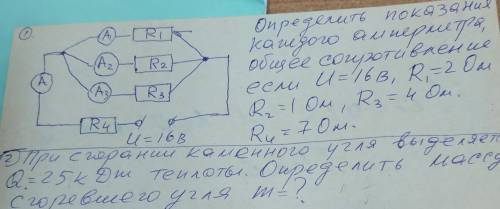 ①
Определить показания
каждого амперметра,
общее сопротивление
если U=16В, R₁=2 Ом
R₂=1 Ом, R₃=4 Ом.
R₄=7 Ом.
A R₁
A₂ R₂
A R₃
A
R₄
U=16В
② При сгорании каменного угля выделяет
Q=25 кДж теплоты. Определить массу
сгоревшего угля m=?